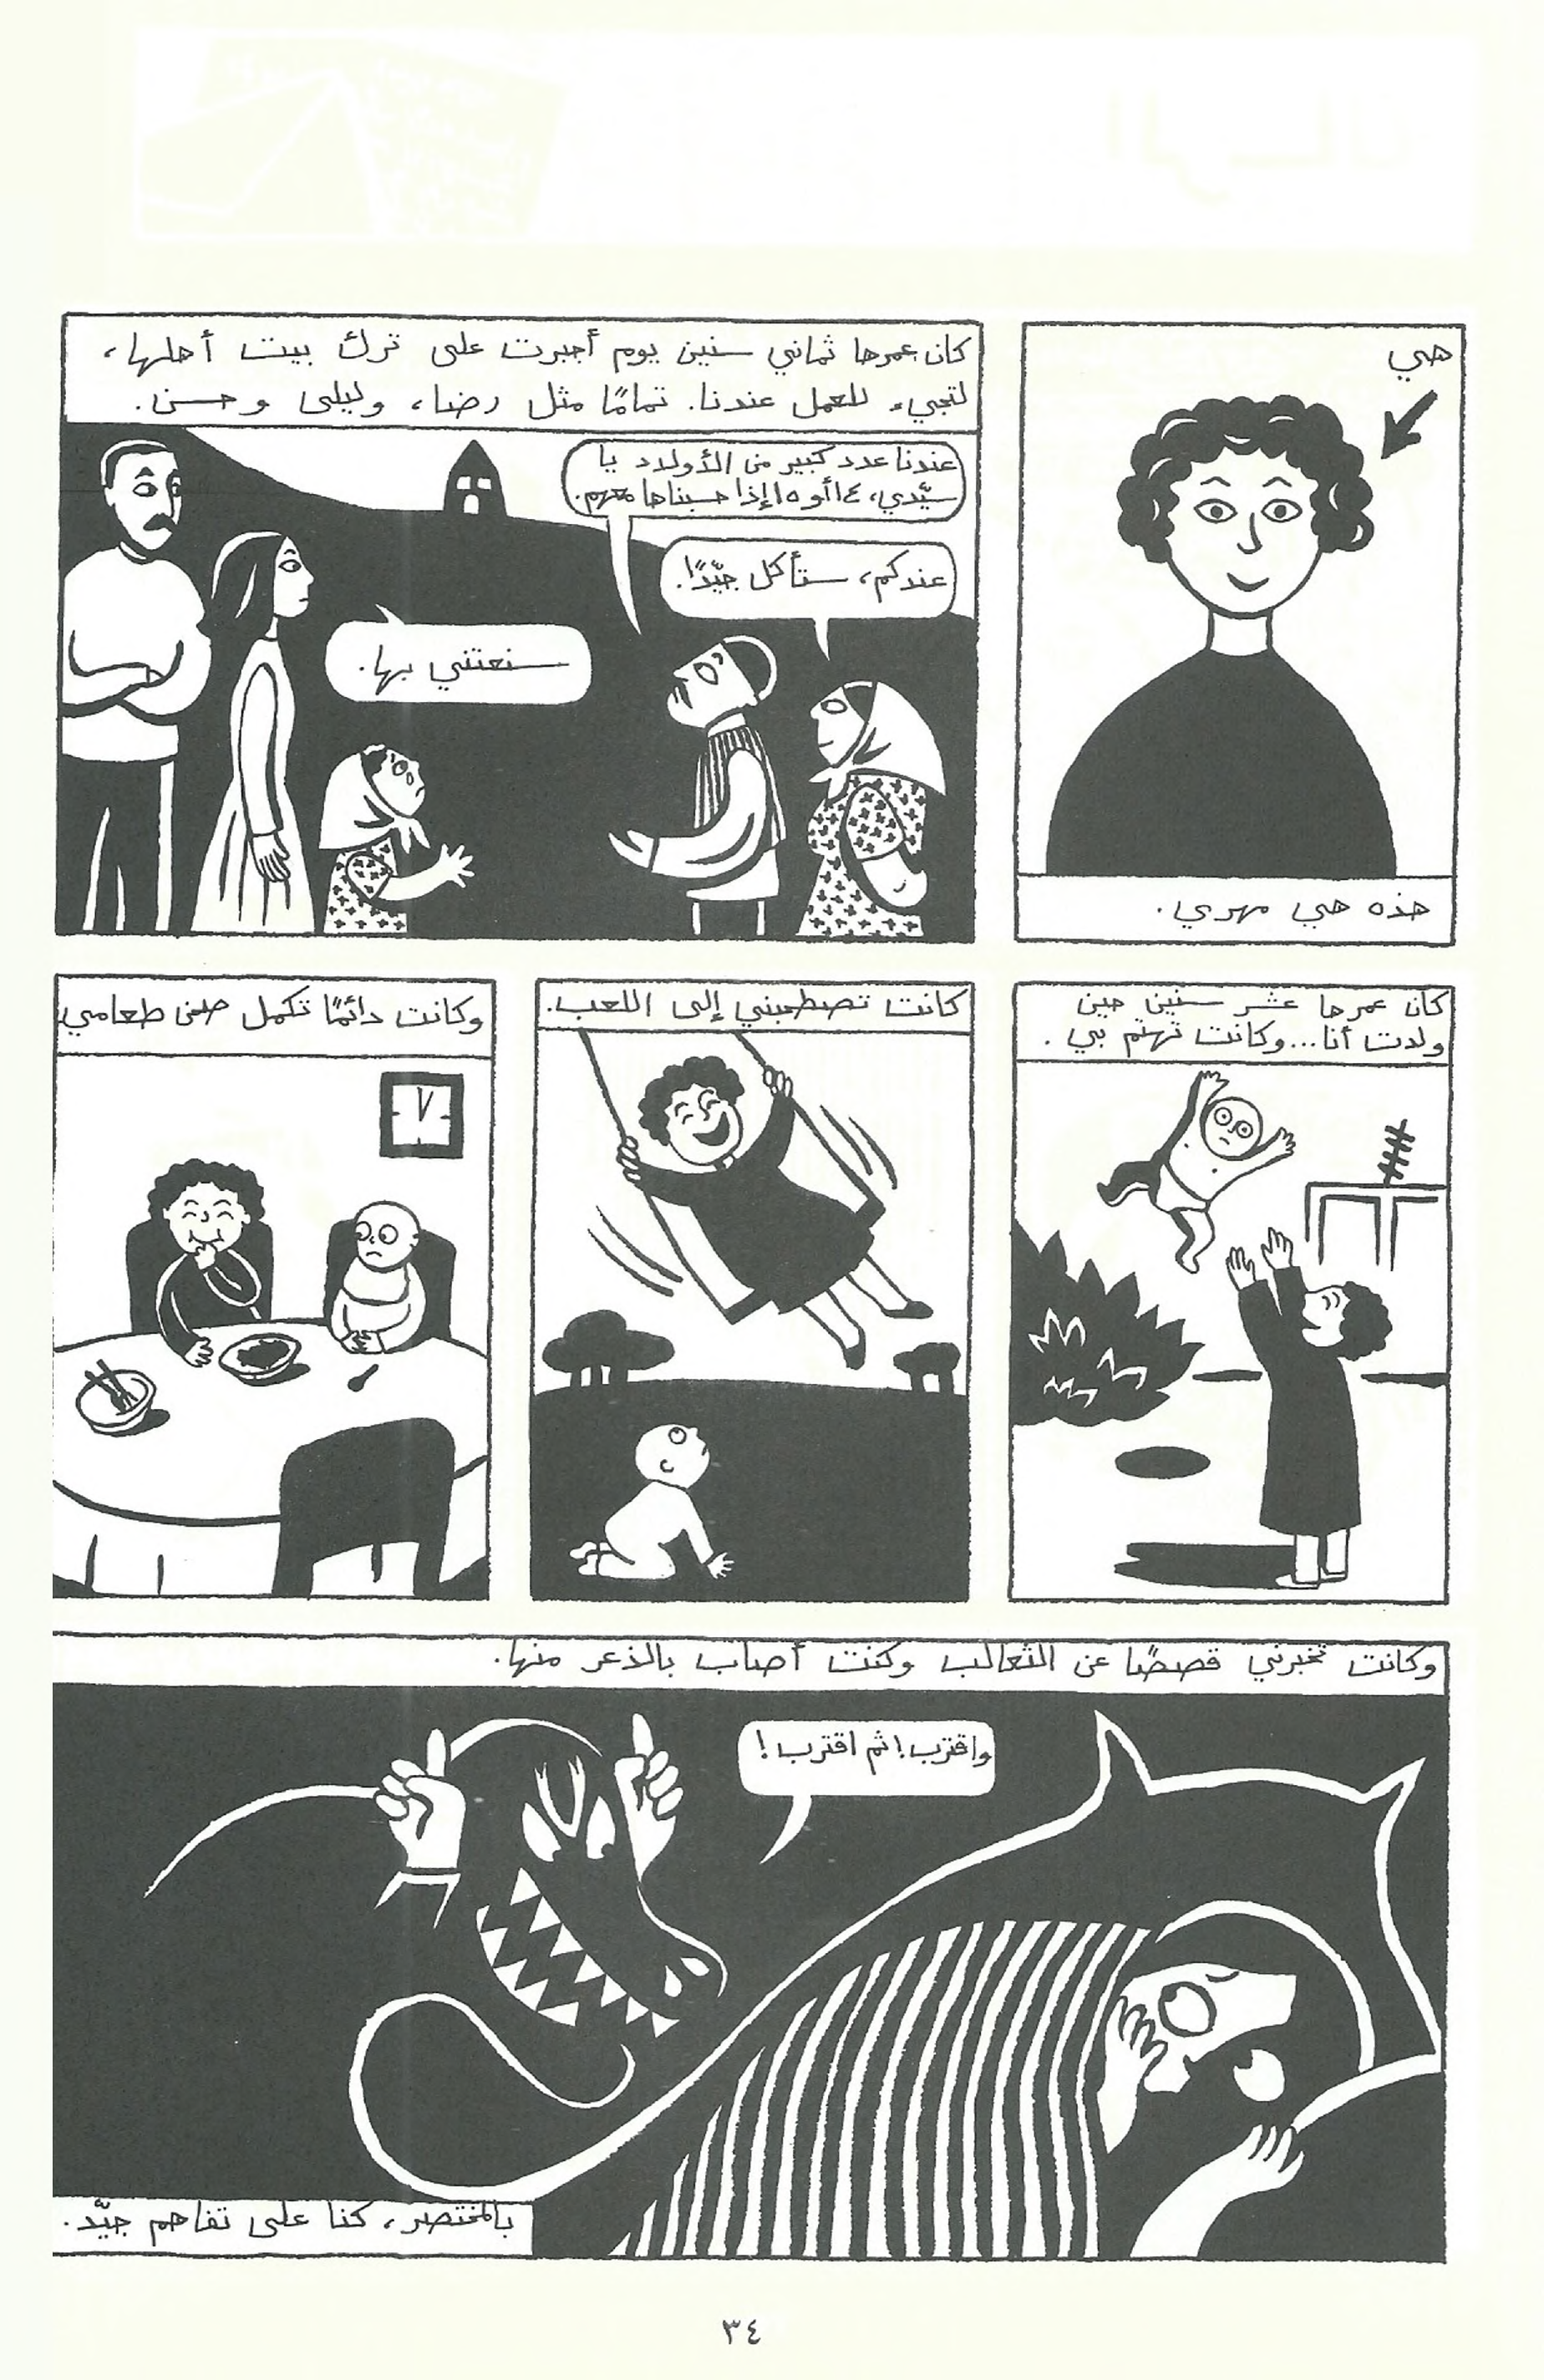 هي
هذه هي مهري.
كان عمرها ثماني سنين يوم أجبرت على ترك بيت أهلها،
لتجيء للعمل عندنا. تمامًا مثل رضا، وليلى وحسن.
عندنا عدد كبير من الأولاد يا
سيّدي، ١٤ أو ١٥ إذا حسبناها معهم.
عندكم، ستأكل جيّدًا.
سنعتني بها.
كان عمرها عشر سنين حين
ولدت أنا... وكانت تهتم بي.
كانت تصطحبني إلى اللعب.
وكانت دائمًا تكمل صحن طعامي
وكانت تخبرني قصصًا عن الثعالب وكنت أصاب بالذعر منها.
واقترب! ثم اقترب!
بالمختصر، كنا على تفاهم جيّد.
٣٤